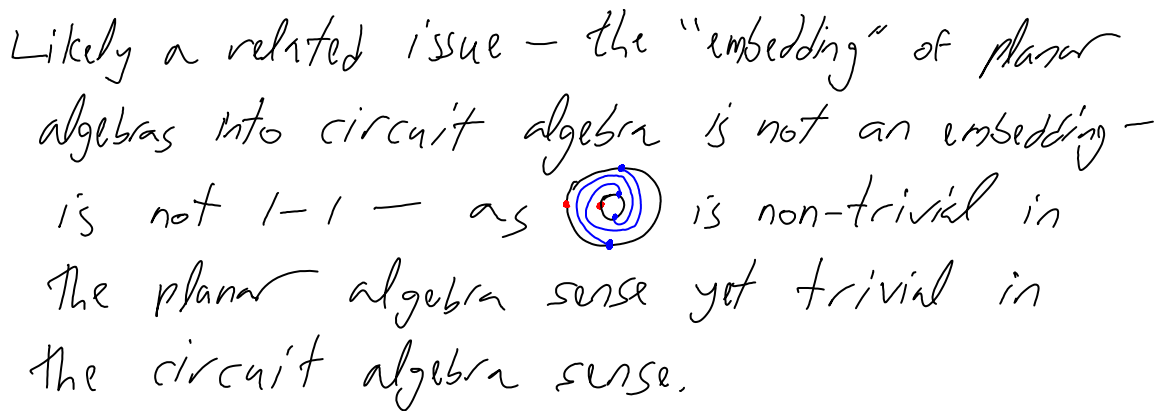 Likely a related issue – the "embedding" of planar
algebras into circuit algebra is not an embedding –
is not 1-1 – as is non-trivial in
the planar algebra sense yet trivial in
the circuit algebra sense.